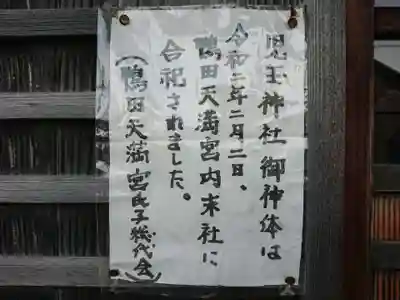 児玉神社御神体は
令和二年二月二日、
鴨田天満宮内末社に
合祀されました。
（鴨田天満宮氏子総代会）